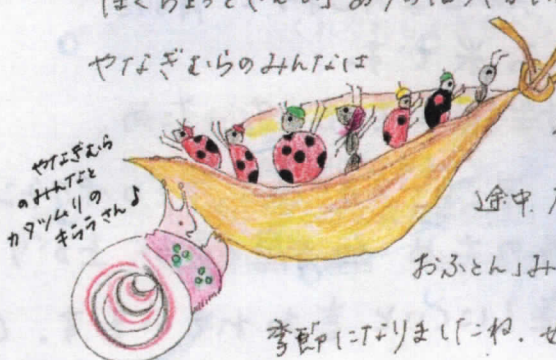 ぼくちょっと
やなぎむらのみんなは
やなぎむら
のみんなと
カタツムりの
きららさん♪
途中
おふとん」み
季節になりましたね.